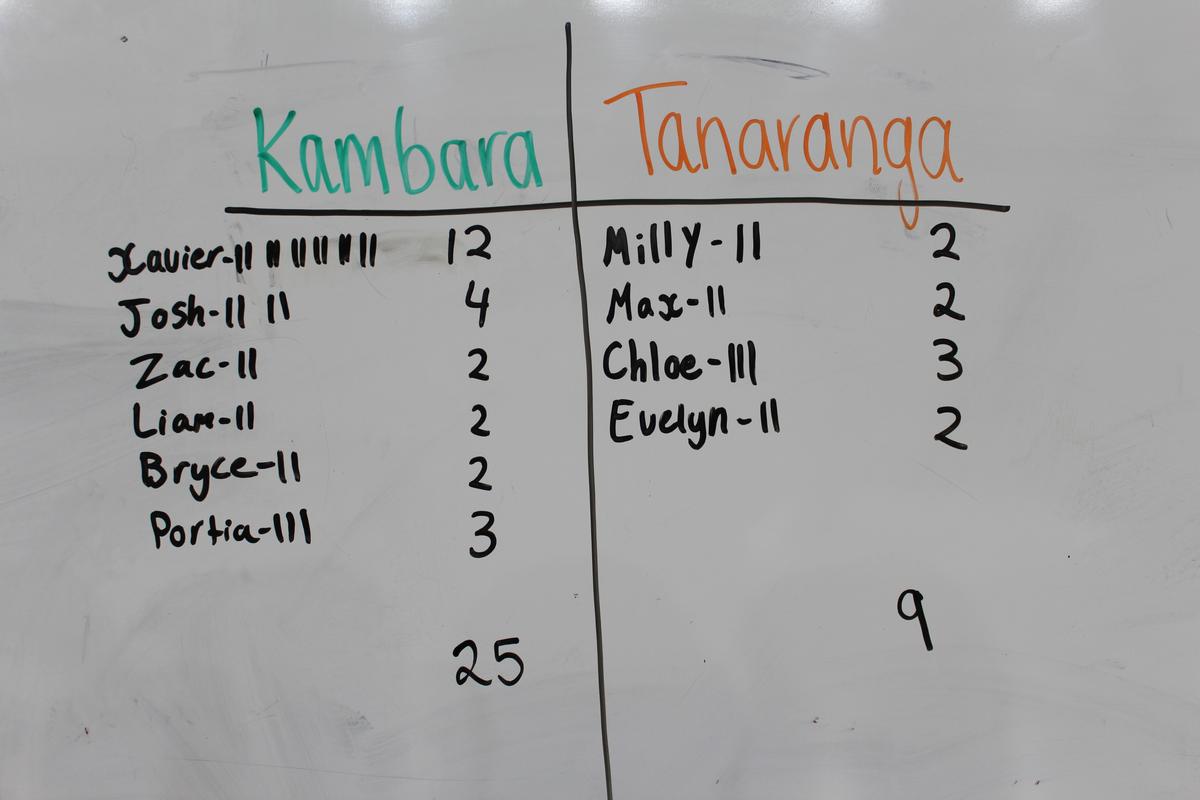 Kambara
Xavier-II II II II II II 12
Josh-II II 4
Zac-II 2
Liam-II 2
Bryce-II 2
Portia-III 3
25
Tanaranga
Milly-II 2
Max-II 2
Chloe-III 3
Evelyn-II 2
9